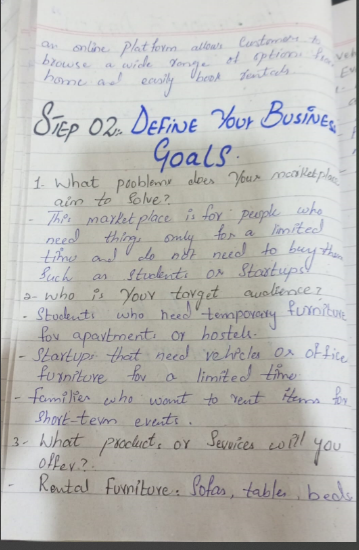 an online platform allows customers to
browse a wide range of options from
home and easily book rentals.
STEP 02: DEFINE Your BUSINESS
Goals.
1. What problems does Your marketplace
aim to Solve?
- This marketplace is for people who
need things only for a limited
time and do not need to buy them
Such as Students or Startups
2- who is Your target audience?
- Students who need temporary furniture
for apartments or hostels.
- Startups that need vehicles or office
furniture for a limited time
- Families who want to rent items for
short-term events.
3- What products or Services will you
offer?
- Rental Furniture: Sofas, tables, beds